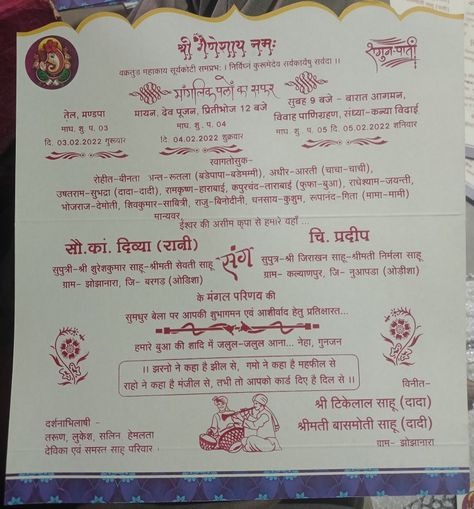 श्री गणेशाय नमः
शगुन-पाती
वक्रतुण्ड महाकाय सूर्यकोटी समप्रभः । निर्विघ्नं कुरूमेदेव सर्वकार्येषु सर्वदा ।।
माँगलिक पलों का सफर
तेल, मण्डपा
माघ. शु. प. 03
दि. 03.02.2022 गुरूवार
मायन, देव पूजन, प्रितीभोज 12 बजे
माघ. शु. प. 04
दि. 04.02.2022 शुक्रवार
सुबह 9 बजे - बारात आगमन,
विवाह पाणिग्रहण, संध्या-कन्या विदाई
माघ. शु. प. 05 दि. 05.02.2022 शनिवार
स्वागतोसुक-
रोहीत-बीनता अन्त-रूतला (बडेपापा-बडेमम्मी), अधीर-आरती (चाचा-चाची),
उषतराम-सुभद्रा (दादा-दादी), रामकृष्ण-हाराबाई, कपुरचंद-ताराबाई (फुफा-बुआ), राधेश्याम-जयन्ती,
भोजराज-देमोती, शिवकुमार-साबित्री, राजु-बिनोदीनी, घनसाय-कुशुम, रूपानंद-गिता (मामा-मामी)
मान्यवर,
ईश्वर की असीम कृपा से हमारे यहाँ ...
सौ.कां. दिव्या (रानी)
सुपुत्री-श्री शुरेशकुमार साहु-श्रीमती सेवती साहू
ग्राम- झोझानारा, जि- बरगड (ओडिशा)
संग
चि. प्रदीप
सुपुत्र-श्री जिराखन साहू-श्रीमती निर्मला साहू
ग्राम- कल्याणपुर, जि- नुआपडा (ओड़ीशा)
के मंगल परिणय की
सुमधुर बेला पर आपकी शुभागमन एवं आशीर्वाद हेतु प्रतिक्षारत...
हमारे बुआ की शादि में जलुल-जलुल आना... नेहा, गुनजन
।। झरनो ने कहा है झील से, गमो ने कहा है महफील से
राहो ने कहा है मंजील से, तभी तो आपको कार्ड दिए है दिल से ।।
दर्शनाभिलाषी -
तरूण, लुकेश, सलिन हेमलता
देविका एवं समस्त साहू परिवार
विनीत-
श्री टिकेलाल साहू (दादा)
श्रीमती बासमोती साहू (दादी)
ग्राम- झोझानारा